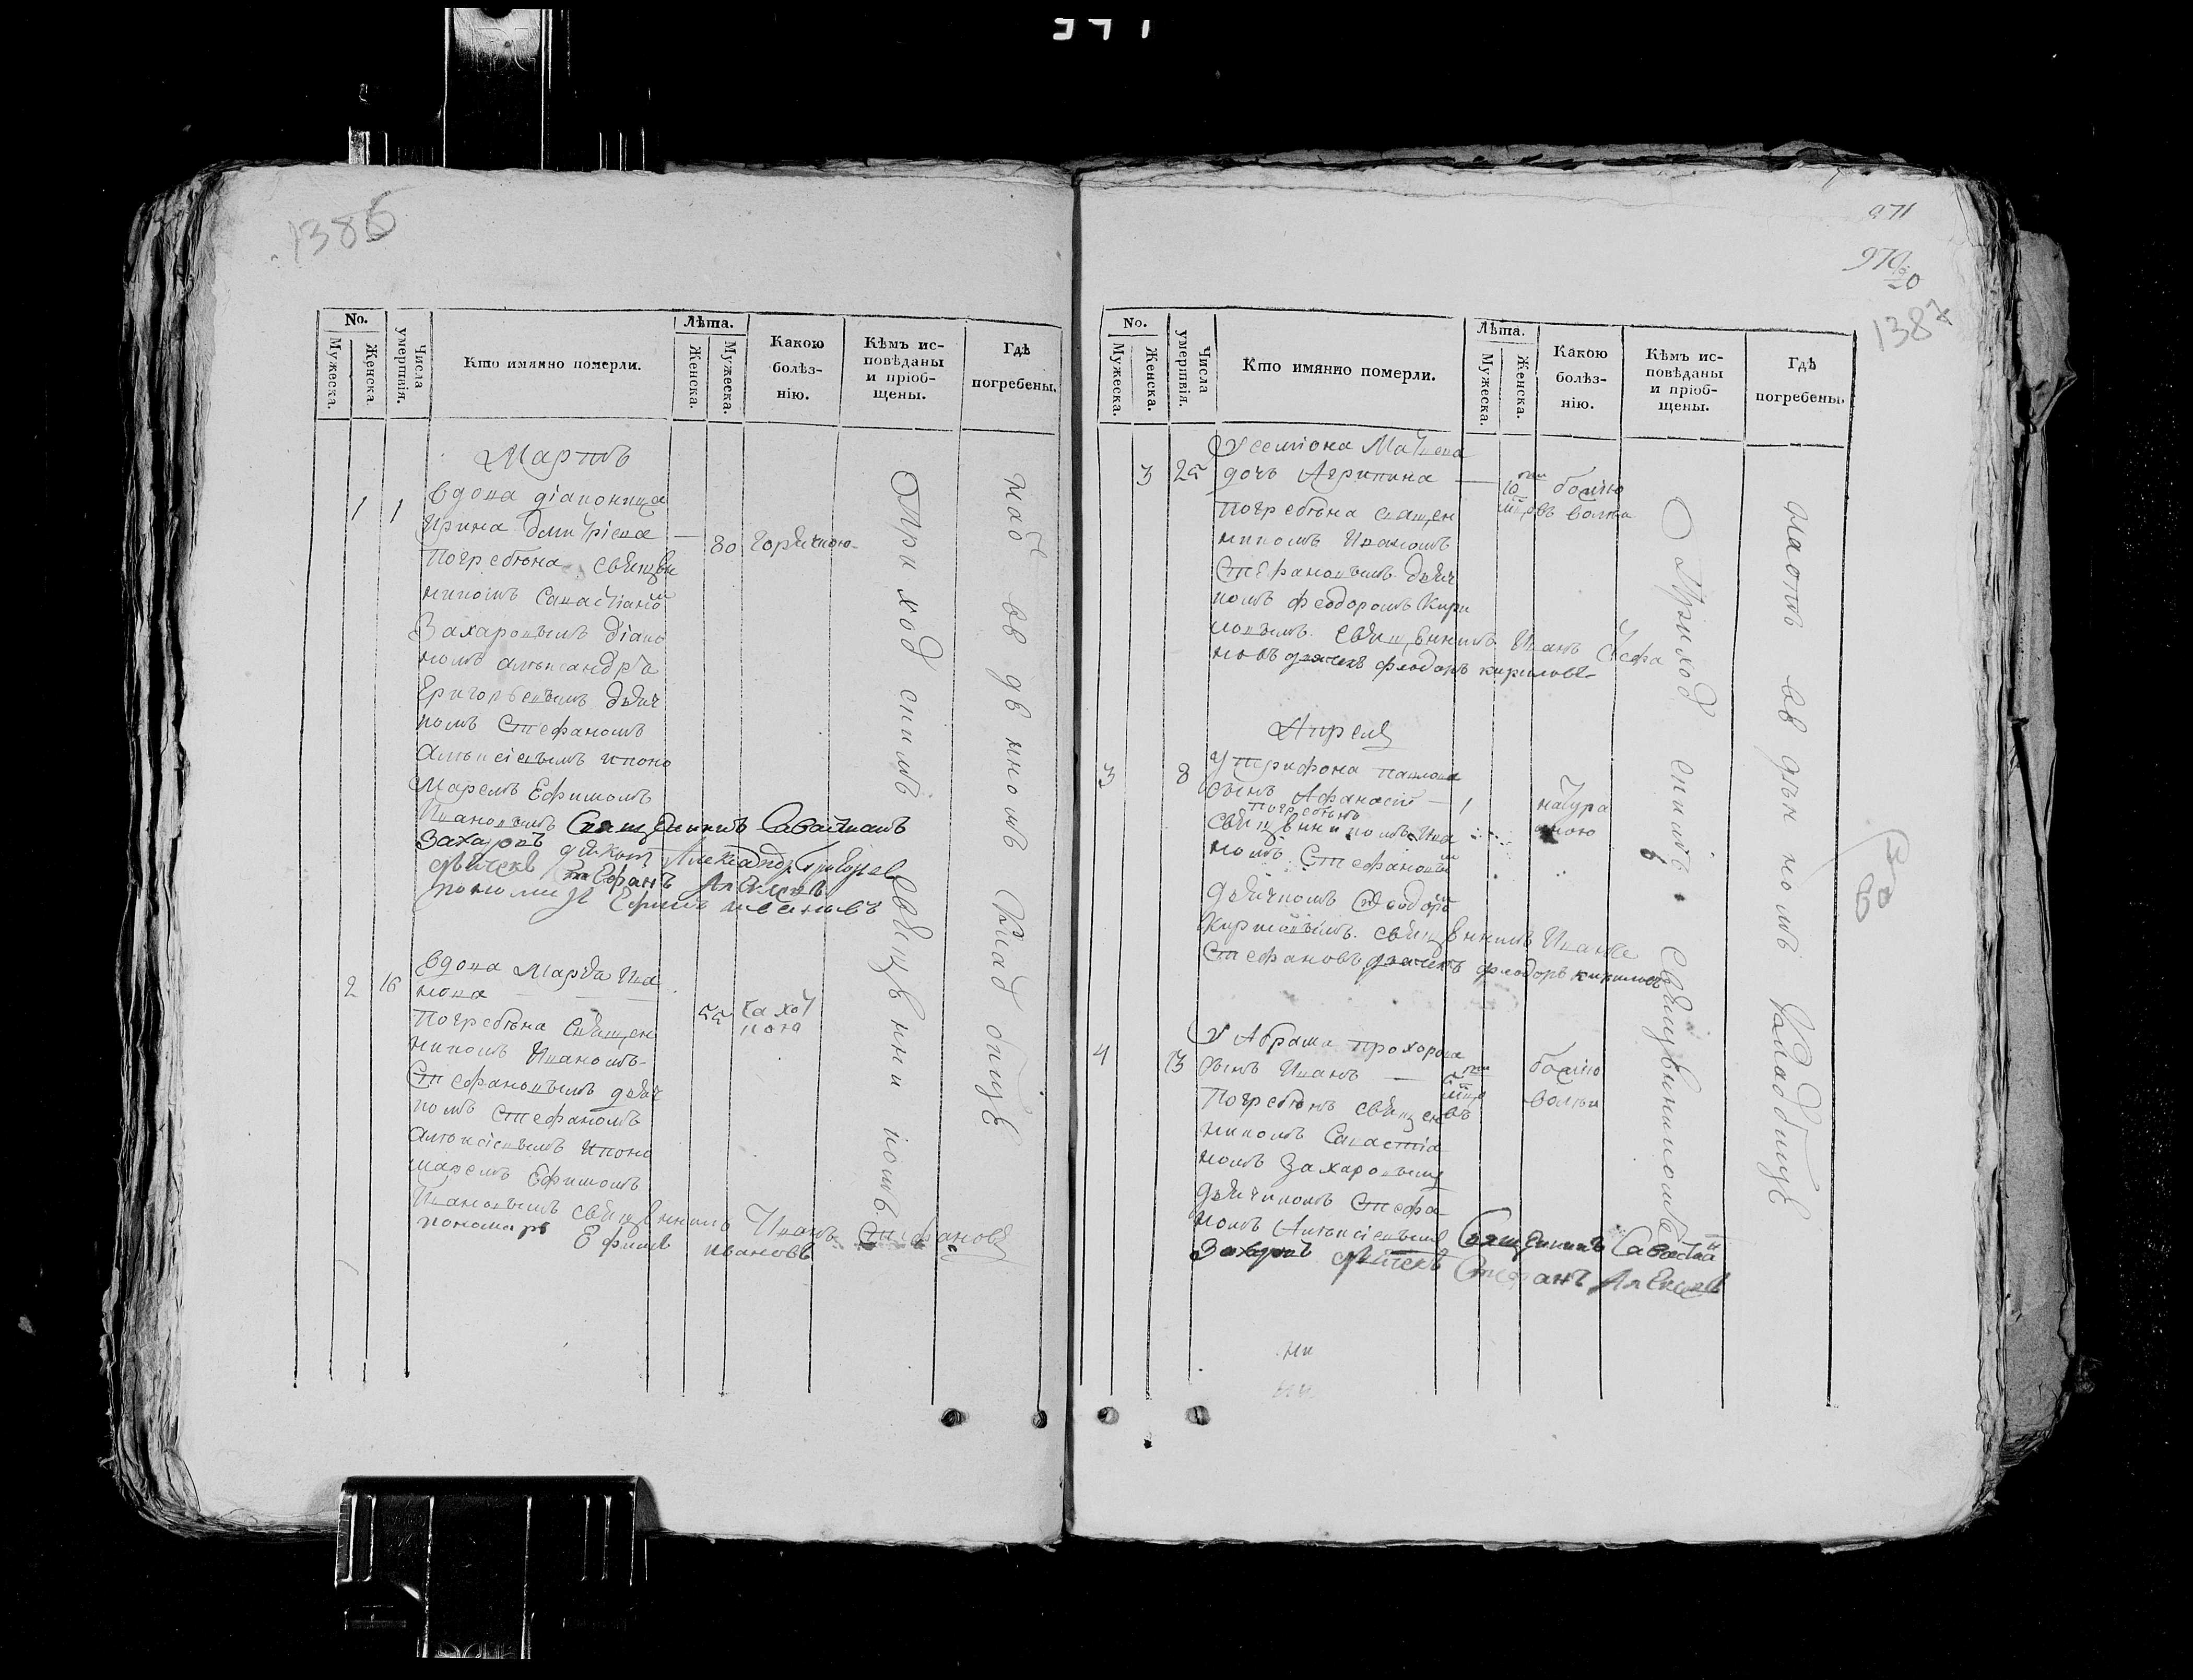 1386
No.
Мужеска.
Женска.
Числа умертвія.
Кто имянно померли.
Лѣта.
Женска.
Мужеска.
Какою болѣз-
нію.
Кѣмъ ис-
повѣданы
и пріоб-
щены.
Гдѣ
погребены.
Мартъ
1 1 вдова діаконица
Ирина Дмитріева — 80 горячкою
Погребена священ
никомъ Савастіаном
Захаровымъ діако
номъ александръ
Григорьевымъ дьяч
комъ Стефаномъ
Алексіевымъ и поно
маремъ Ефимомъ
Ивановымъ Священникъ Савастианъ
Захаровъ дияконъ Александръ Григорьев
дьячекъ Стефанъ Алексеевъ
пономарь Ефимъ ивановъ
2 16 вдова Марфа Ива
нова 55 чахот
кою
Погребена Священ
никомъ Иваномъ
Стефановымъ дьяч
комъ Стефаномъ
Алексіевымъ и поно
маремъ Ефимомъ
Ивановымъ священникъ Иванъ Стефановъ
пономарь Ефимъ ивановъ
Приходскимъ священникомъ
на отведенномъ кладбищѣ
971
970
1387
No.
Мужеска.
Женска.
Числа умертвія.
Кто имянно померли.
Лѣта.
Мужеска.
Женска.
Какою
болѣз-
нію.
Кѣмъ ис-
повѣданы
и пріоб-
щены.
Гдѣ
погребены.
У семіона
3 25 дочь Агрипина — 10
Погребена священ
никомъ Иваномъ
Стефановымъ дьяч
комъ феодоромъ Кири
ловымъ. священникъ Иванъ Стефа
новъ дьячекъ феодоръ кириловъ
Апреля
3 8 У трифона павлова
сынъ Афанасій — 1 натура
льною
погребенъ
священникомъ Ива
номъ Стефановым
дьячкомъ Феодором
Кириловымъ. священникъ Иванъ
Стефановъ дьячекъ феодоръ кириловъ
4 13 У Абрама прохорова
сынъ Иванъ —
Погребенъ священ
никомъ Савастіа
номъ Захаровымъ
дьячкомъ Стефа
номъ Алексіевымъ Священникъ Савастиан
Захаровъ дьячекъ Стефанъ Алексеевъ
Приходскимъ священникомъ
кладбищѣ